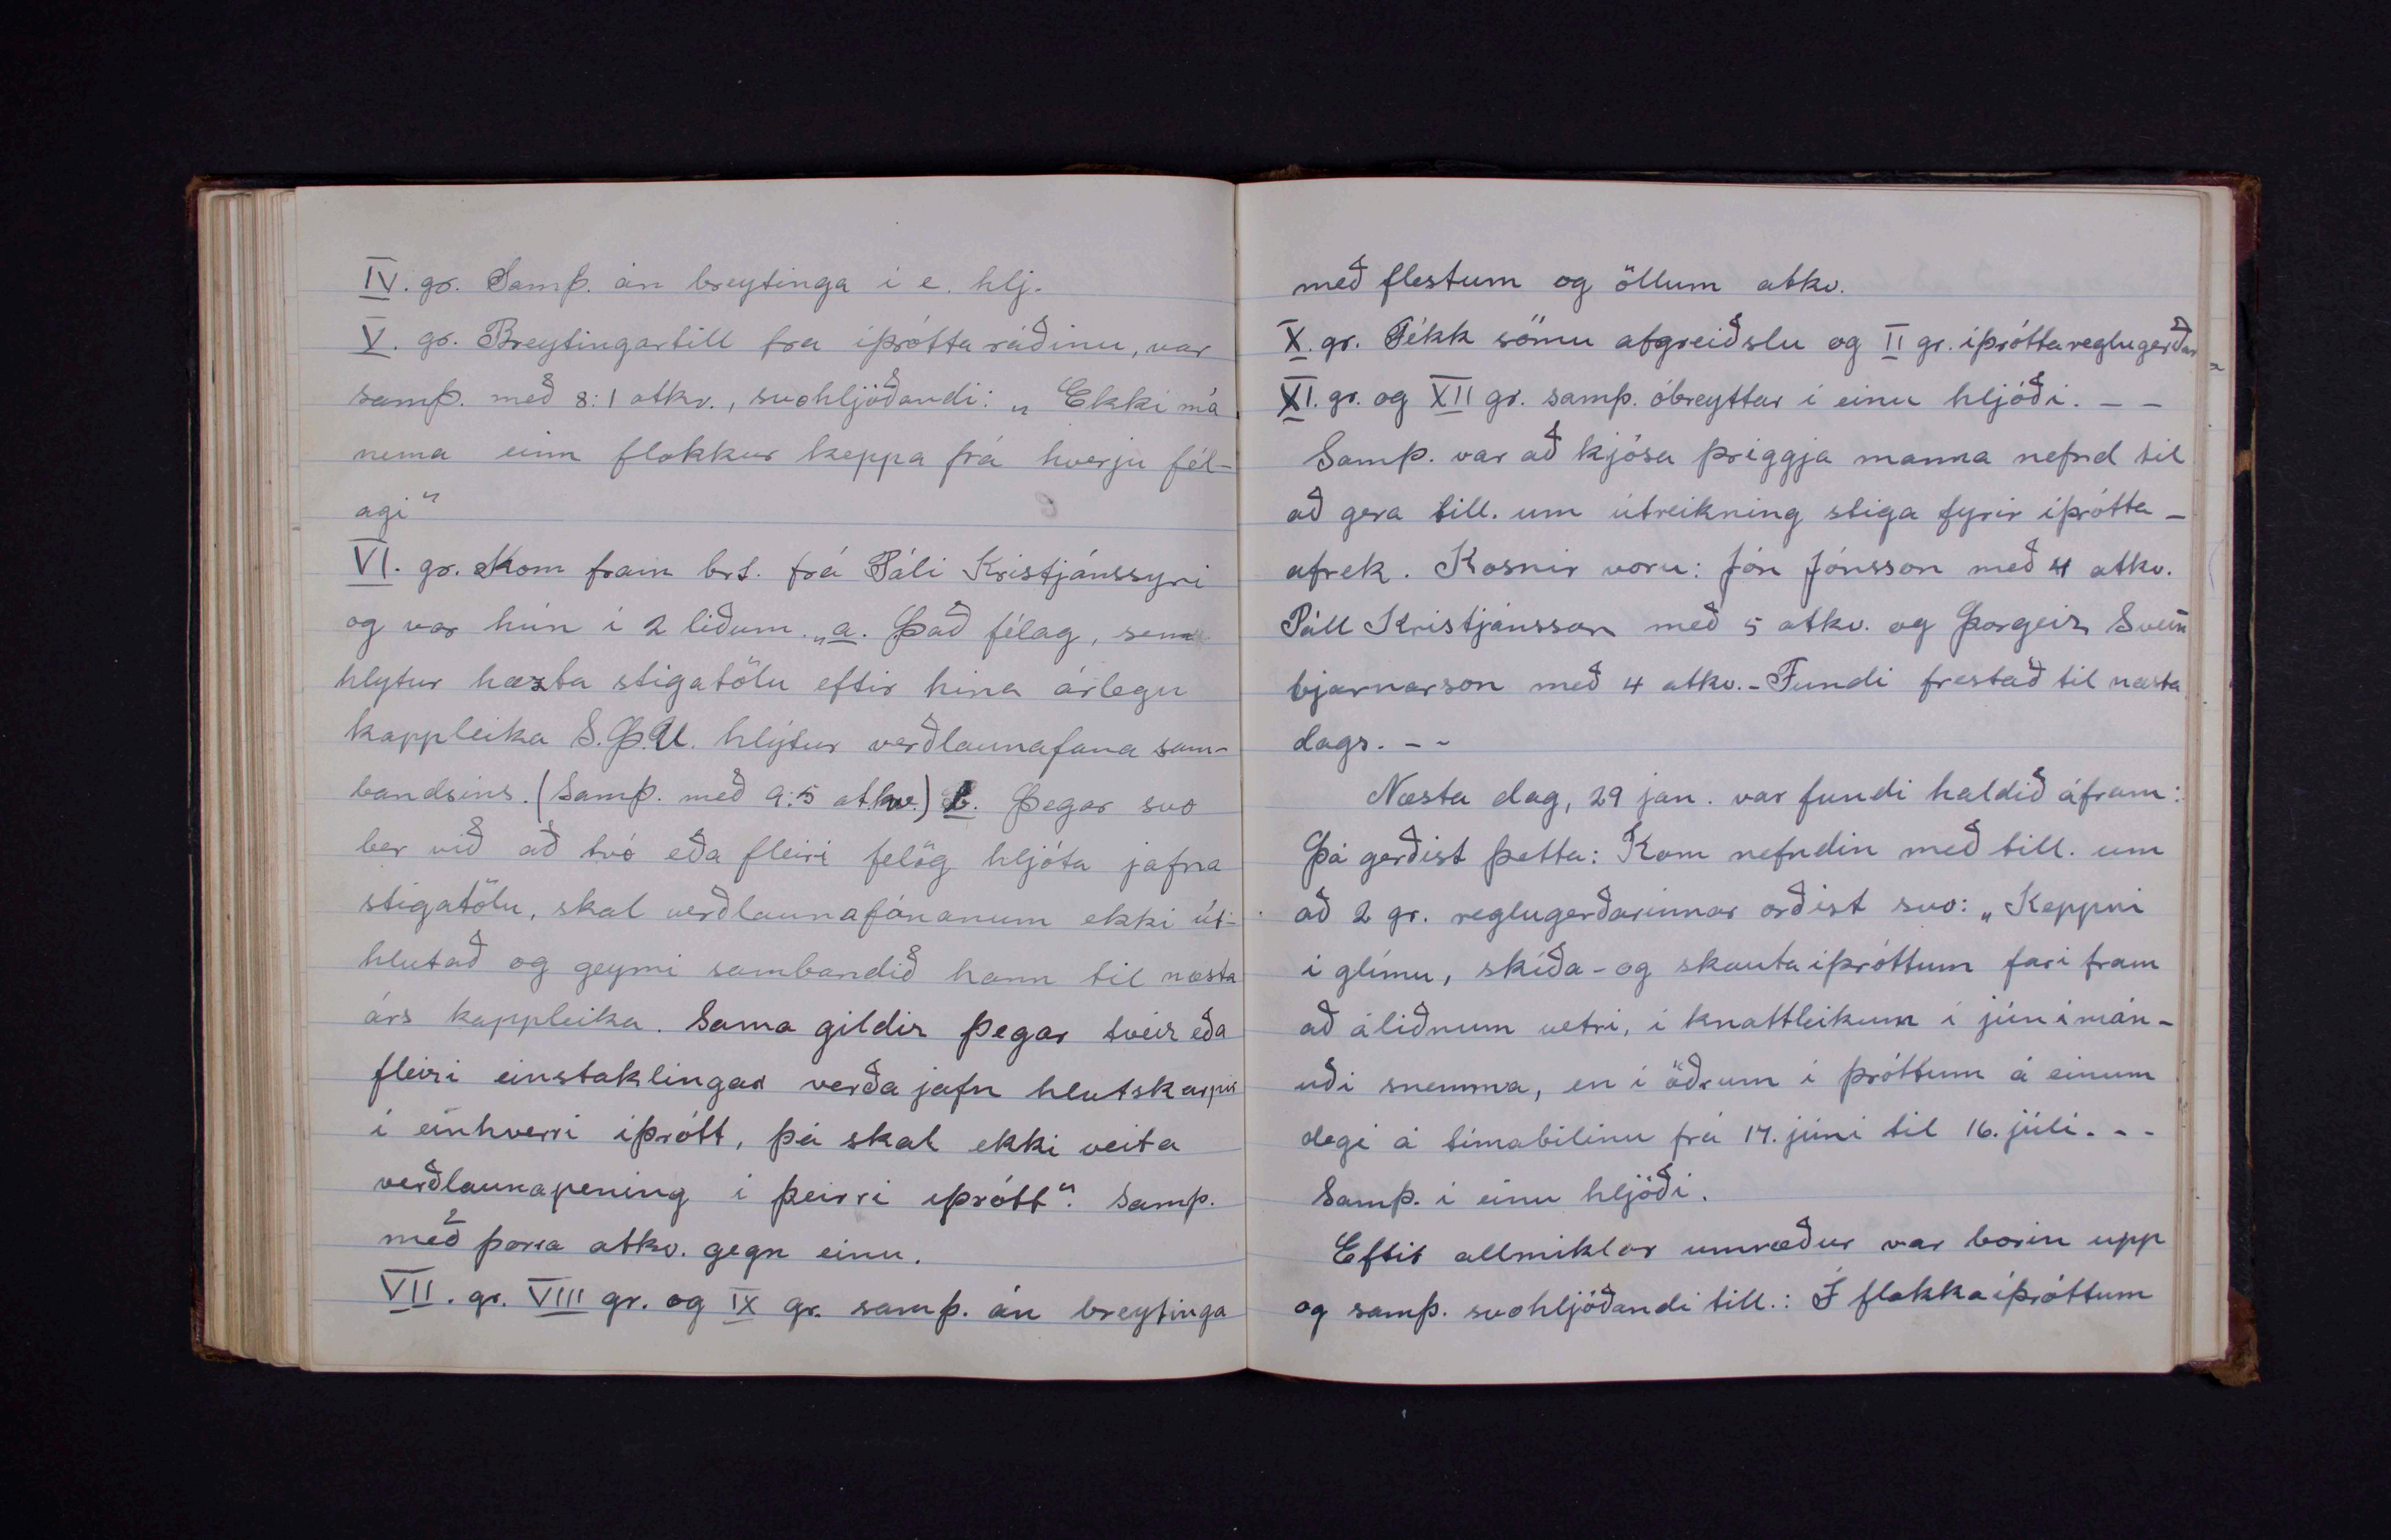 IV. gr. Samþ. án breytinga í e. hlj.
V. gr. Breytingartill fra íþróttaráðinu, var
samþ. með 8:1 atkv., svohljóðandi: „Ekki má
nema einn flokkur keppa frá hverju fél-
agi“
VI. gr. Kom fram brt. frá Páli Kristjánssyni
og var hún í 2 liðum. „a. Það félag, sem
hlytur hæzta stigatölu eftir hina árlegu
kappleika S.Þ.U. hlýtur verðlaunafana sam-
bandsins. (Samþ. með 9:5 atkv.) b. Þegar svo
ber við að tvó eða fleiri felög hljóta jafna
stigatölu, skal verðlaunafánanum ekki út-
hlutað og geymi sambandið hann til næsta
árs kappleika. Sama gildir þegar tveir eða
fleiri einstaklingar verða jafn hlutskarpir
í einhverri íþrótt, þá skal ekki veita
verðlaunapening í þeirri íþrótt“. Samþ.
með þorra atkv. gegn einu.
VII. gr. VIII gr. og IX gr. samþ. án breytinga
með flestum og öllum atkv.
X. gr. Fékk sömu afgreiðslu og II gr. íþróttareglugerðar
XI. gr. og XII gr. samþ. óbreyttar í einu hljóði. - -
Samþ. var að kjósa þriggja manna nefnd til
að gera till. um útreikning stiga fyrir íþrótta-
afrek. Kosnir voru: Jón Jónsson með 4 atkv.
Páll Kristjánsson með 5 atkv. og Þorgeir Svein
bjarnarson með 4 atkv. - Fundi frestað til næsta
dags. - -
Næsta dag, 29 jan. var fundi haldið áfram:
Þá gerðist þetta: Kom nefndin með till. um
að 2 gr. reglugerðarinnar orðist svo: „Keppni
í glímu, skíða- og skautaíþróttum fari fram
að áliðnum vetri, í knattleikum í júnímán-
uði snemma, en í öðrum íþróttum á einum
degi á tímabilinu frá 17. júni til 16. júli. - -
Samþ. í einu hljóði.
Eftir allmiklar umræður var borin upp
og samþ. svohljóðandi till.: Í flokkaíþróttum